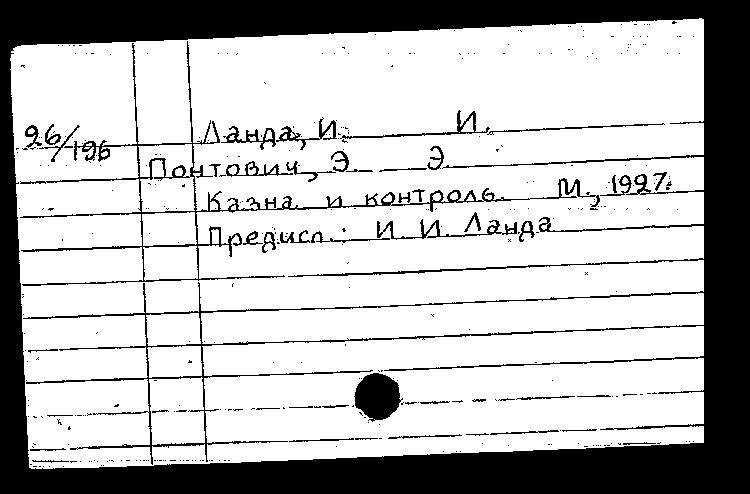 26/196
Ланда, И. И.
Понтович, Э. Э.
Казна и контроль. М., 1927.
Предисл.: И. И. Ланда